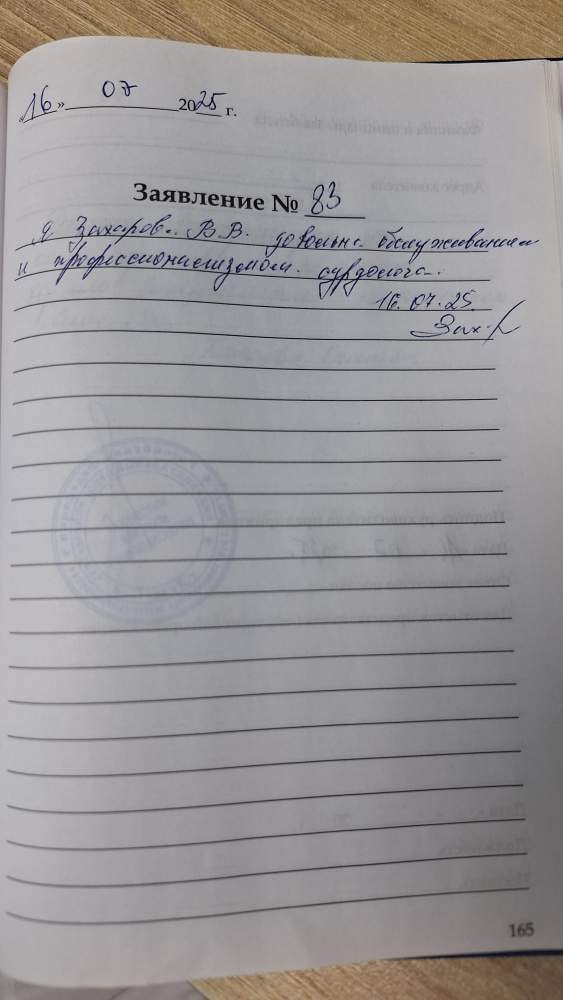 16» 07 2025 г.
Заявление № 83
я Захаров.. В.В. довольна обслуживанием
и профессионализмом. сурдолога.
16.07.25.
165